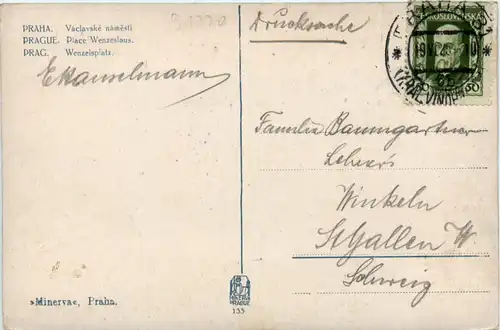 PRAHA. Václavské náměstí
PRAGUE. Place Wenzeslaus.
PRAG. Wenzelsplatz.
Drucksache
Familie Baumgartner
Lehrer's
Winkeln
St Gallen W
Schweiz
»Minerva«, Praha.
MINERVA
PRAGUE
135